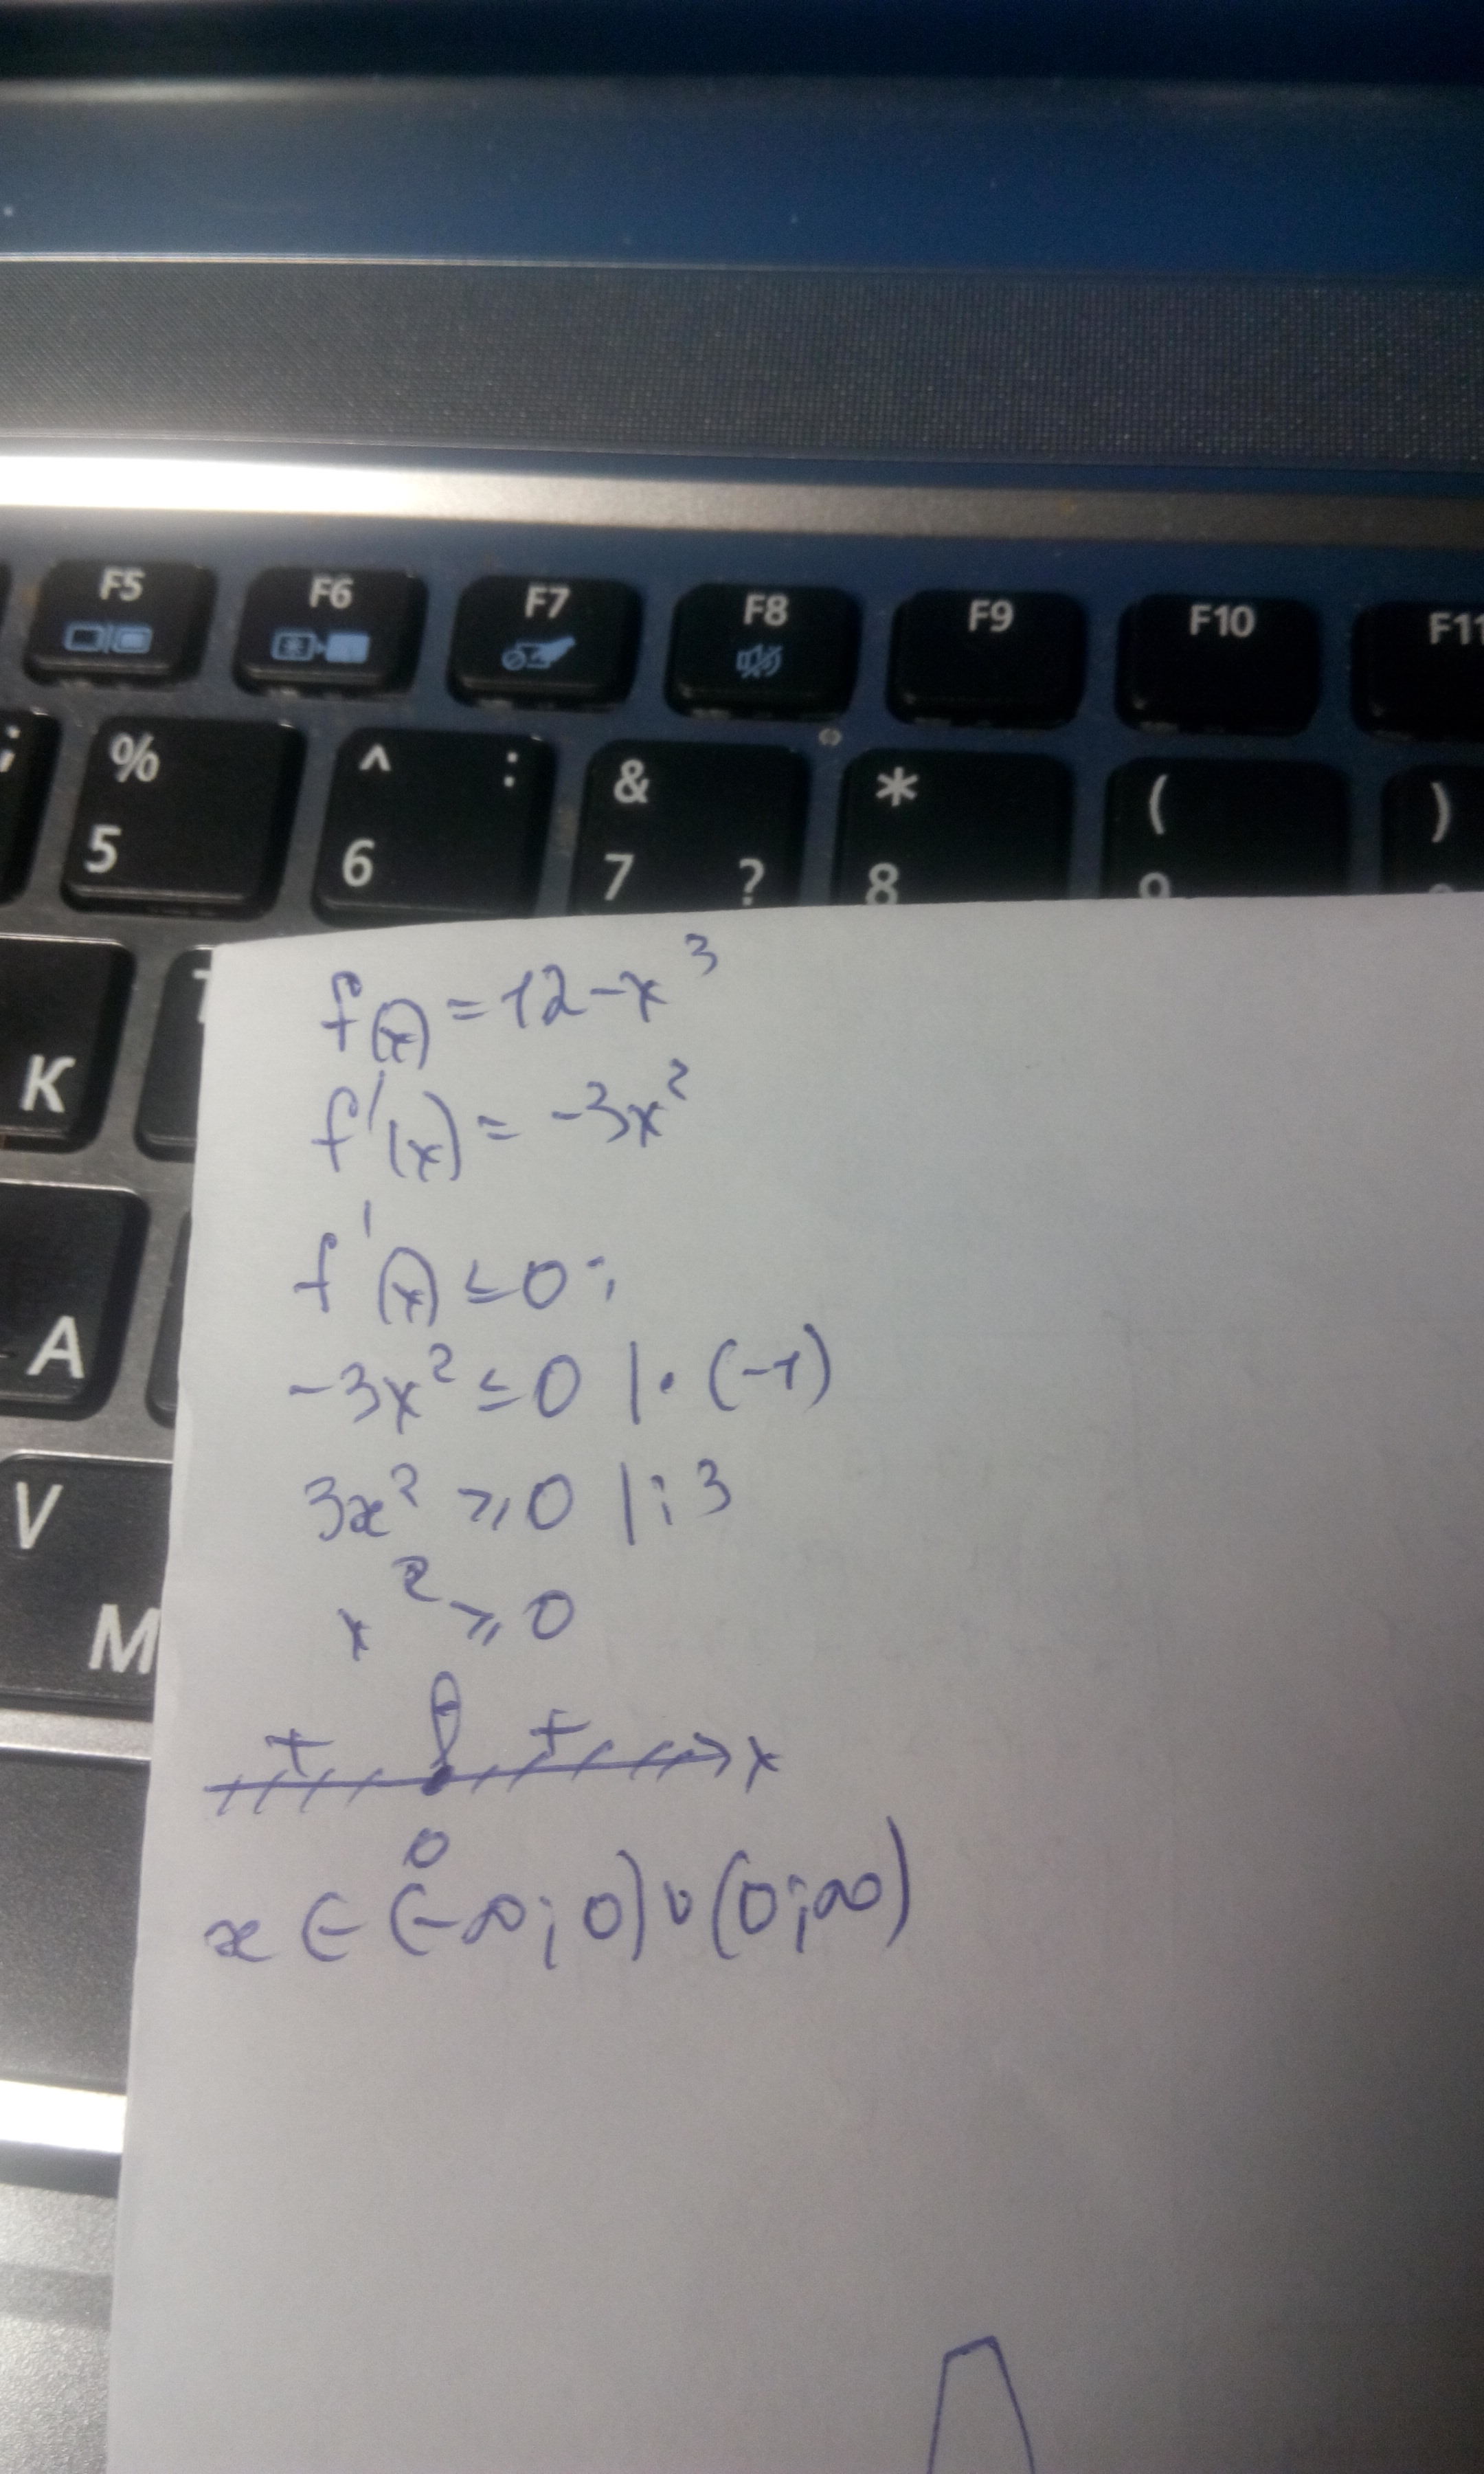 F5 F6 F7 F8 F9 F10 F11
; % 5 ^ : 6 & 7 ? * 8 ( 9 )
K
A
V
M
f(x) = 12 - x³
f'(x) = -3x²
f'(x) ≤ 0;
-3x² ≤ 0 |· (-1)
3x² ≥ 0 |: 3
x² ≥ 0
+ - + x
0
x ∈ (-∞; 0) ∪ (0; ∞)